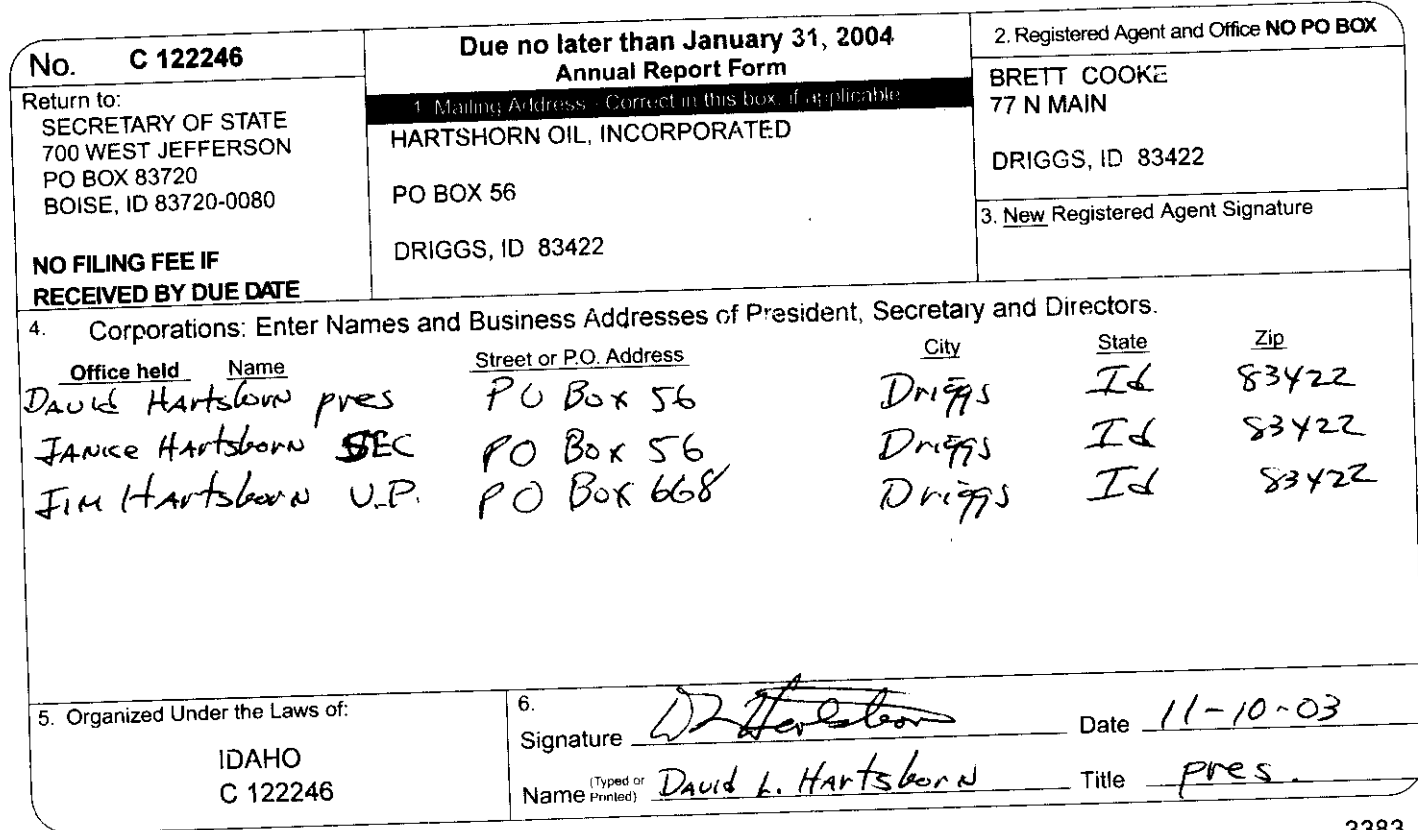 No. C 122246
Return to:
SECRETARY OF STATE
700 WEST JEFFERSON
PO BOX 83720
BOISE, ID 83720-0080
NO FILING FEE IF
RECEIVED BY DUE DATE
Due no later than January 31, 2004
Annual Report Form
1. Mailing Address - Correct in this box, if applicable
HARTSHORN OIL, INCORPORATED
PO BOX 56
DRIGGS, ID 83422
2. Registered Agent and Office NO PO BOX
BRETT COOKE
77 N MAIN
DRIGGS, ID 83422
3. New Registered Agent Signature
4. Corporations: Enter Names and Business Addresses of President, Secretary and Directors.
Office held Name Street or P.O. Address City State Zip
David Hartshorn pres PO Box 56 Driggs Id 83422
Janice Hartshorn SEC PO Box 56 Driggs Id 83422
Jim Hartshorn V.P. PO Box 668 Driggs Id 83422
5. Organized Under the Laws of:
IDAHO
C 122246
6.
Signature D L Hartshorn Date 11-10-03
Name (Typed or Printed) David L. Hartshorn Title pres.
3383